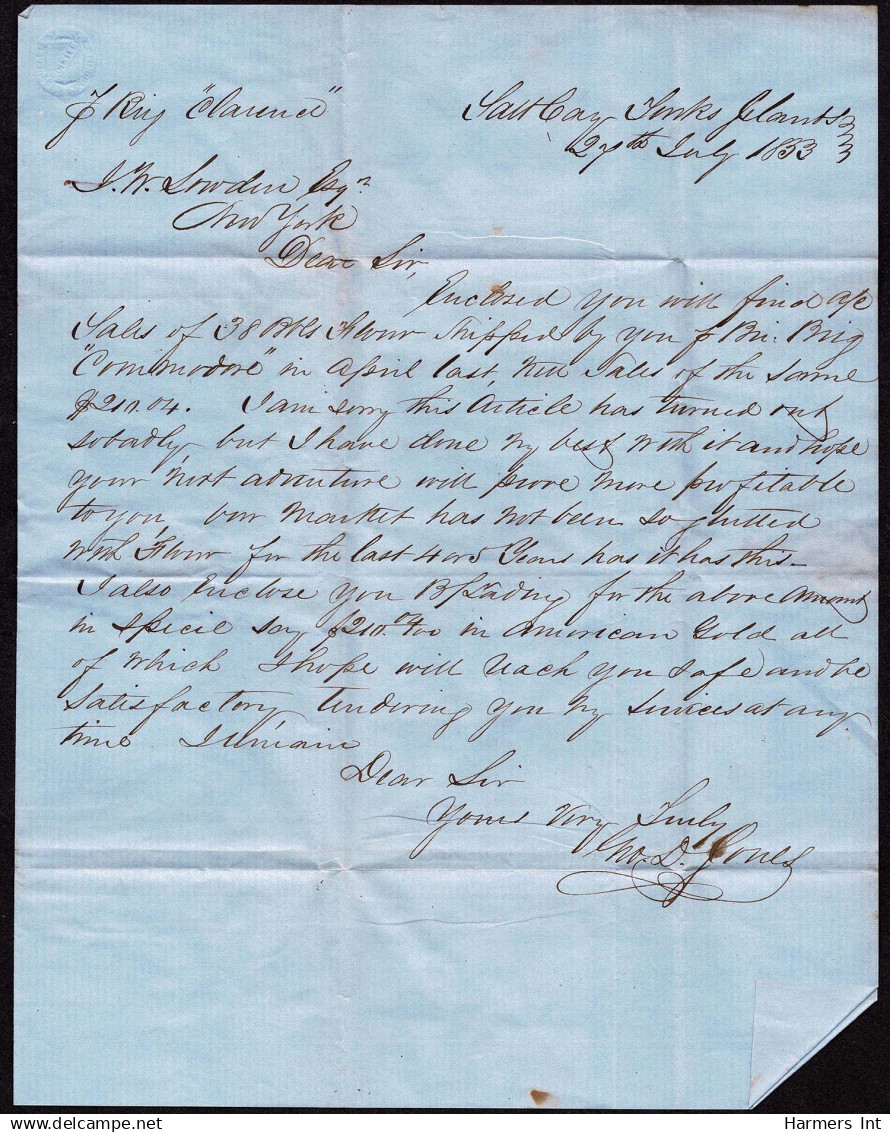 ℘ Brig "Clarence"
Salt Cay Turks Islands
27th July 1853
J. W. Lowden Esqr
New York
Dear Sir,
Enclosed you will find a/c
Sales of 38 Bbls Flour Shipped by you ℘ Br. Brig
"Commodore" in April last, Nett Sales of the same
$210.04. I am sorry this Article has turned out
so badly, but I have done my best with it and hope
your next adventure will prove more profitable
to you, our Market has not been so glutted
with Flour for the last 4 or 5 Years has it has this—
I also Enclose you B/Lading for the above Amount
in specie say $210.04/100 in American Gold all
of which I hope will reach you safe and be
Satisfactory, tendering you my Services at any
time I remain
Dear Sir
Yours Very Truly
Geo. D. Jones
Harmers Int